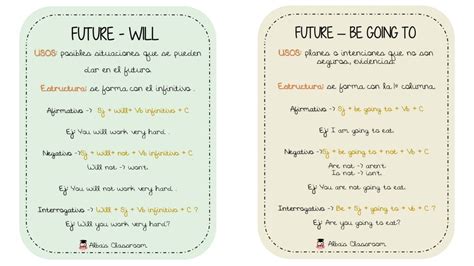 FUTURE - WILL
USOS: posibles situaciones que se pueden
dar en el futuro.
Estructura: se forma con el infinitivo.
Afirmativo -> Sj + will+ Vb infinitivo + C
Ej: You will work very hard.
Negativo ->Sj + will+ not + Vb infinitivo + C
Will not -> won't.
Ej: You will not work very hard.
Interrogativo -> Will + Sj + Vb infinitivo + C ?
Ej: Will you work very hard?
Alba's Classroom
FUTURE – BE GOING TO
USOS: planes o intenciones que no son
seguros, evidencias.
Estructura: se forma con la 1ª columna.
Afirmativo -> Sj + be going to + Vb + C
Ej: I am going to eat.
Negativo ->Sj + be going to + not + Vb + C
Are not -> aren't.
Is not -> isn't.
Ej: You are not going to eat.
Interrogativo -> Be + Sj + going to + Vb + C ?
Ej: Are you going to eat?
Alba's Classroom